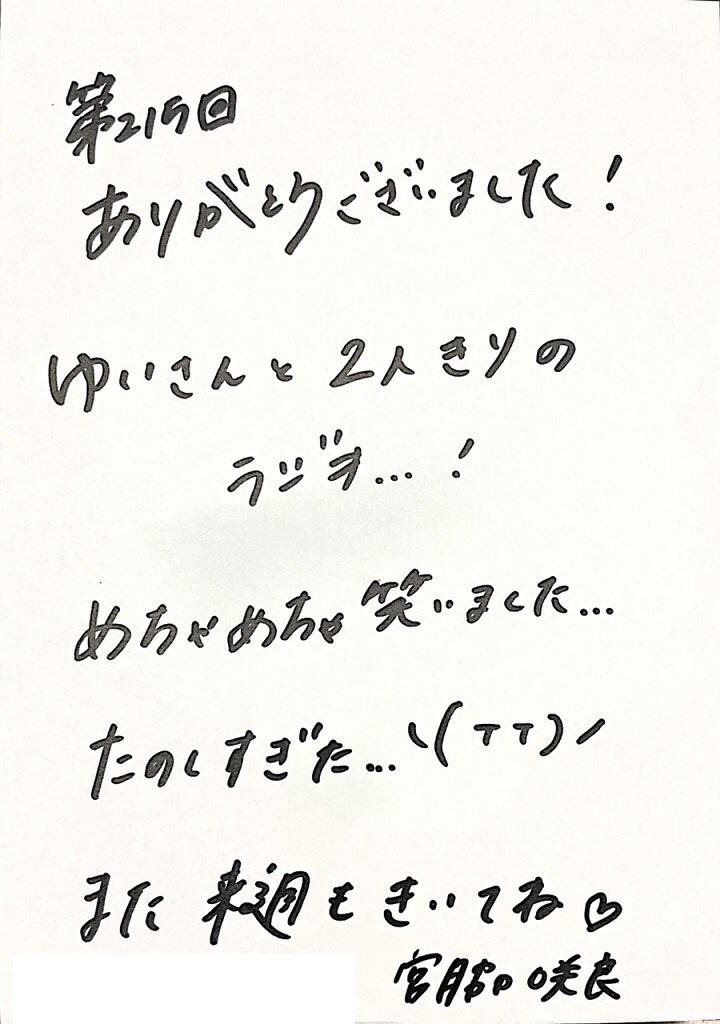 第215回
ありがとうございました！
ゆいさんと2人きりの
ラジオ…！
めちゃめちゃ笑いました…
たのしすぎた…ヽ(TT)ノ
また来週もきいてね♡
宮脇咲良